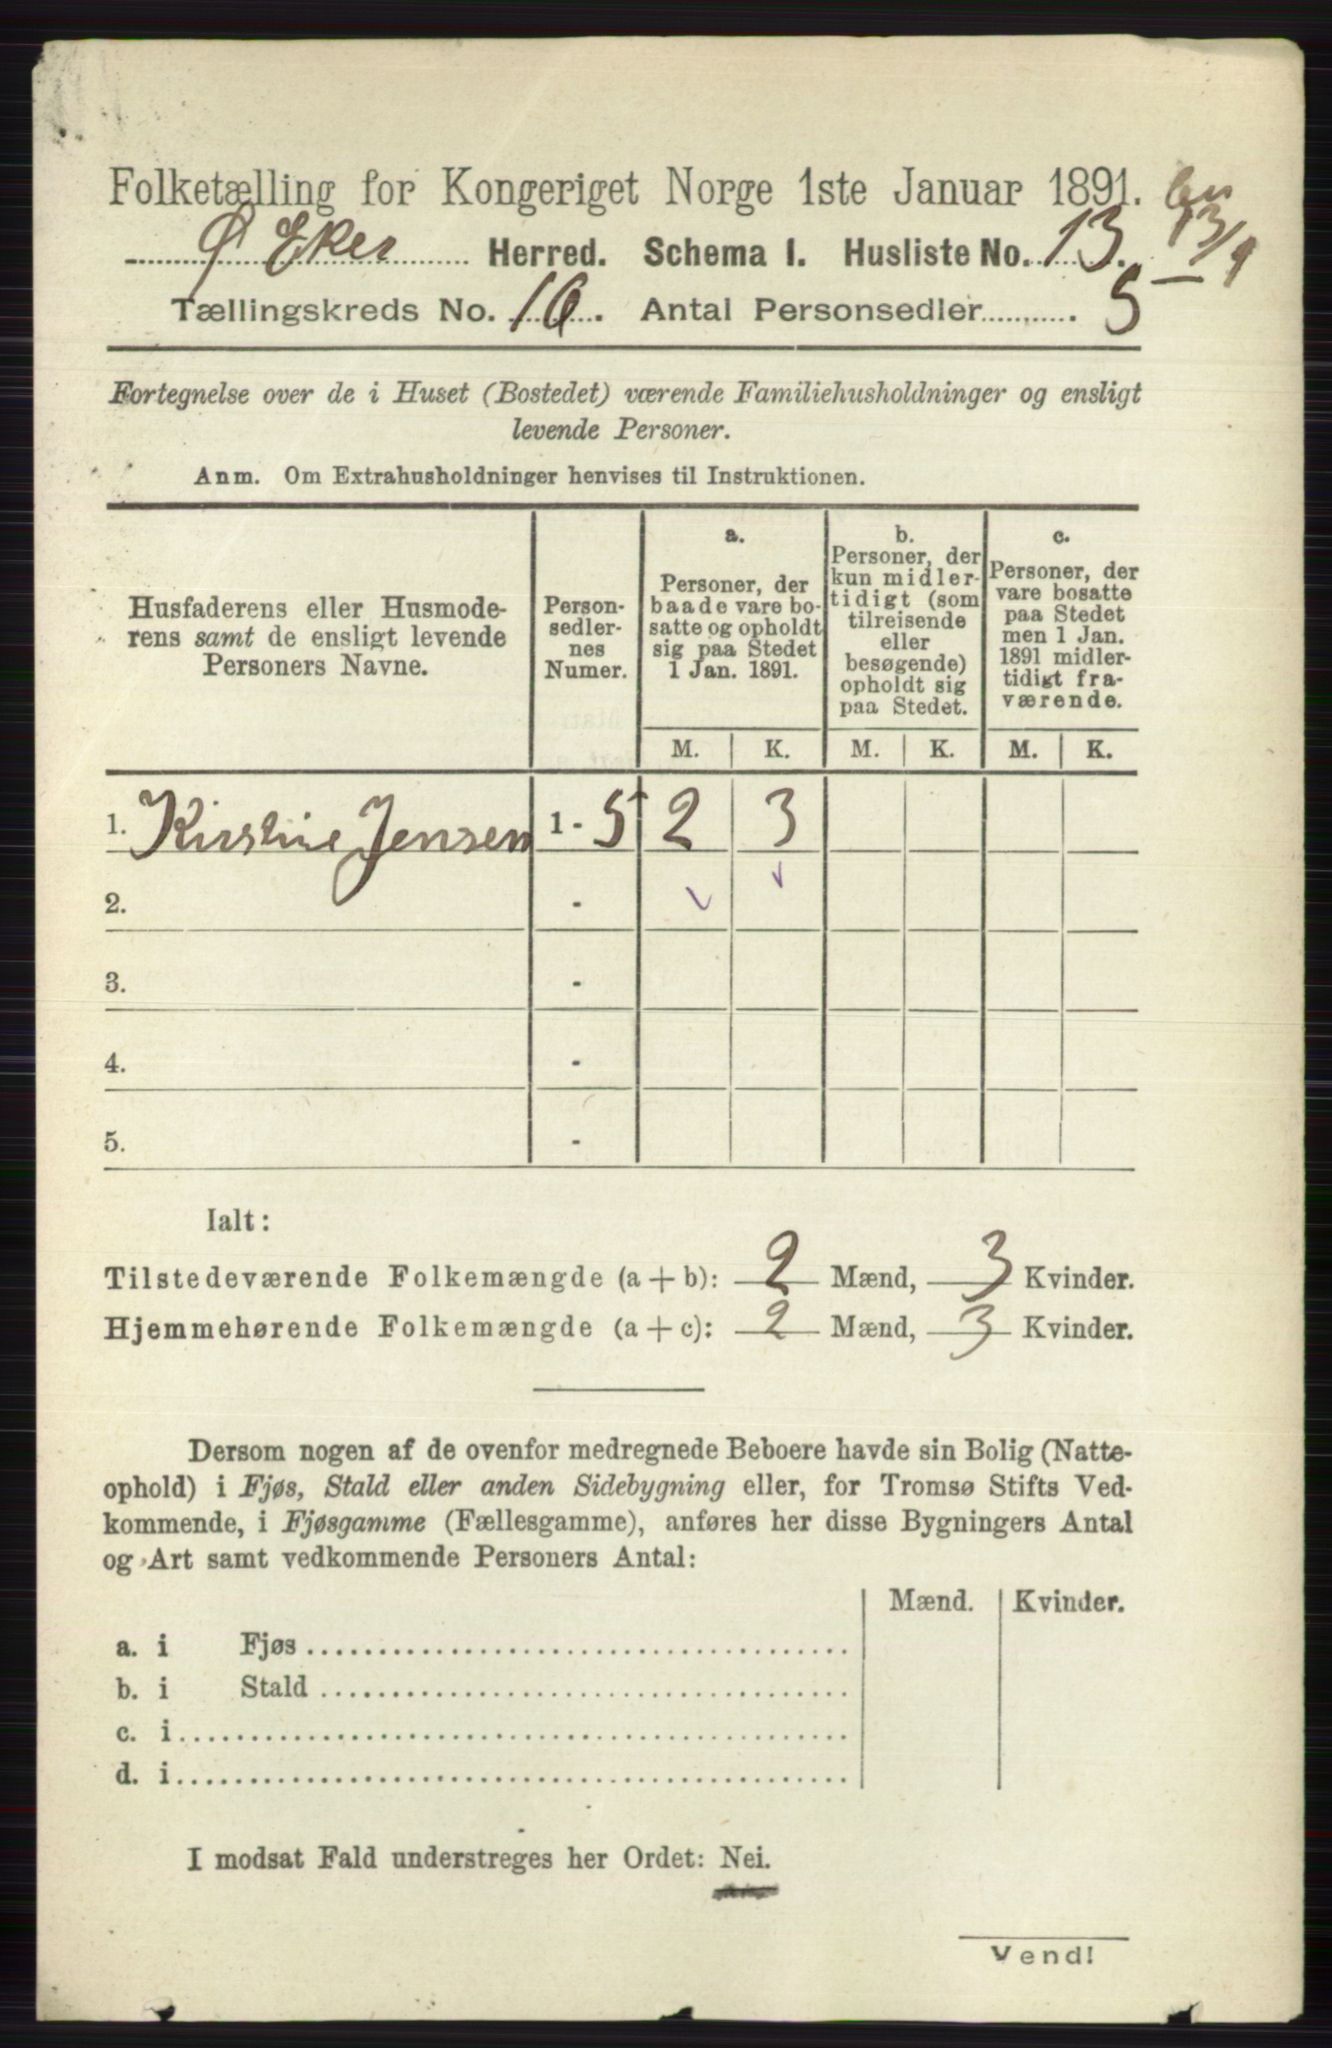 Folketælling for Kongeriget Norge 1ste Januar 1891.
Ø Eker Herred. Schema 1. Husliste No. 13.
13/9
Tællingskreds No. 10. Antal Personsedler . 5
Fortegnelse over de i Huset (Bostedet) værende Familiehusholdninger og ensligt
levende Personer.
Anm. Om Extrahusholdninger henvises til Instruktionen.
Husfaderens eller Husmode-
rens samt de ensligt levende
Personers Navne.
Person-
sedler-
nes
Numer.
a.
Personer, der
baade vare bo-
satte og opholdt
sig paa Stedet
1 Jan. 1891.
b.
Personer, der
kun midler-
tidigt (som
tilreisende
eller
besøgende)
opholdt sig
paa Stedet.
c.
Personer, der
vare bosatte
paa Stedet
men 1 Jan.
1891 midler-
tidigt fra-
værende.
M. K. M. K. M. K.
1. Kirstine Jensen 1 - 5 2 3
2. -
3. -
4. -
5. -
Ialt:
Tilstedeværende Folkemængde (a + b): 2 Mænd, 3 Kvinder.
Hjemmehørende Folkemængde (a + c): 2 Mænd, 3 Kvinder.
Dersom nogen af de ovenfor medregnede Beboere havde sin Bolig (Natte-
ophold) i Fjøs, Stald eller anden Sidebygning eller, for Tromsø Stifts Ved-
kommende, i Fjøsgamme (Fællesgamme), anføres her disse Bygningers Antal
og Art samt vedkommende Personers Antal:
Mænd. Kvinder.
a. i Fjøs
b. i Stald
c. i
d. i
I modsat Fald understreges her Ordet: Nei.
Vend!